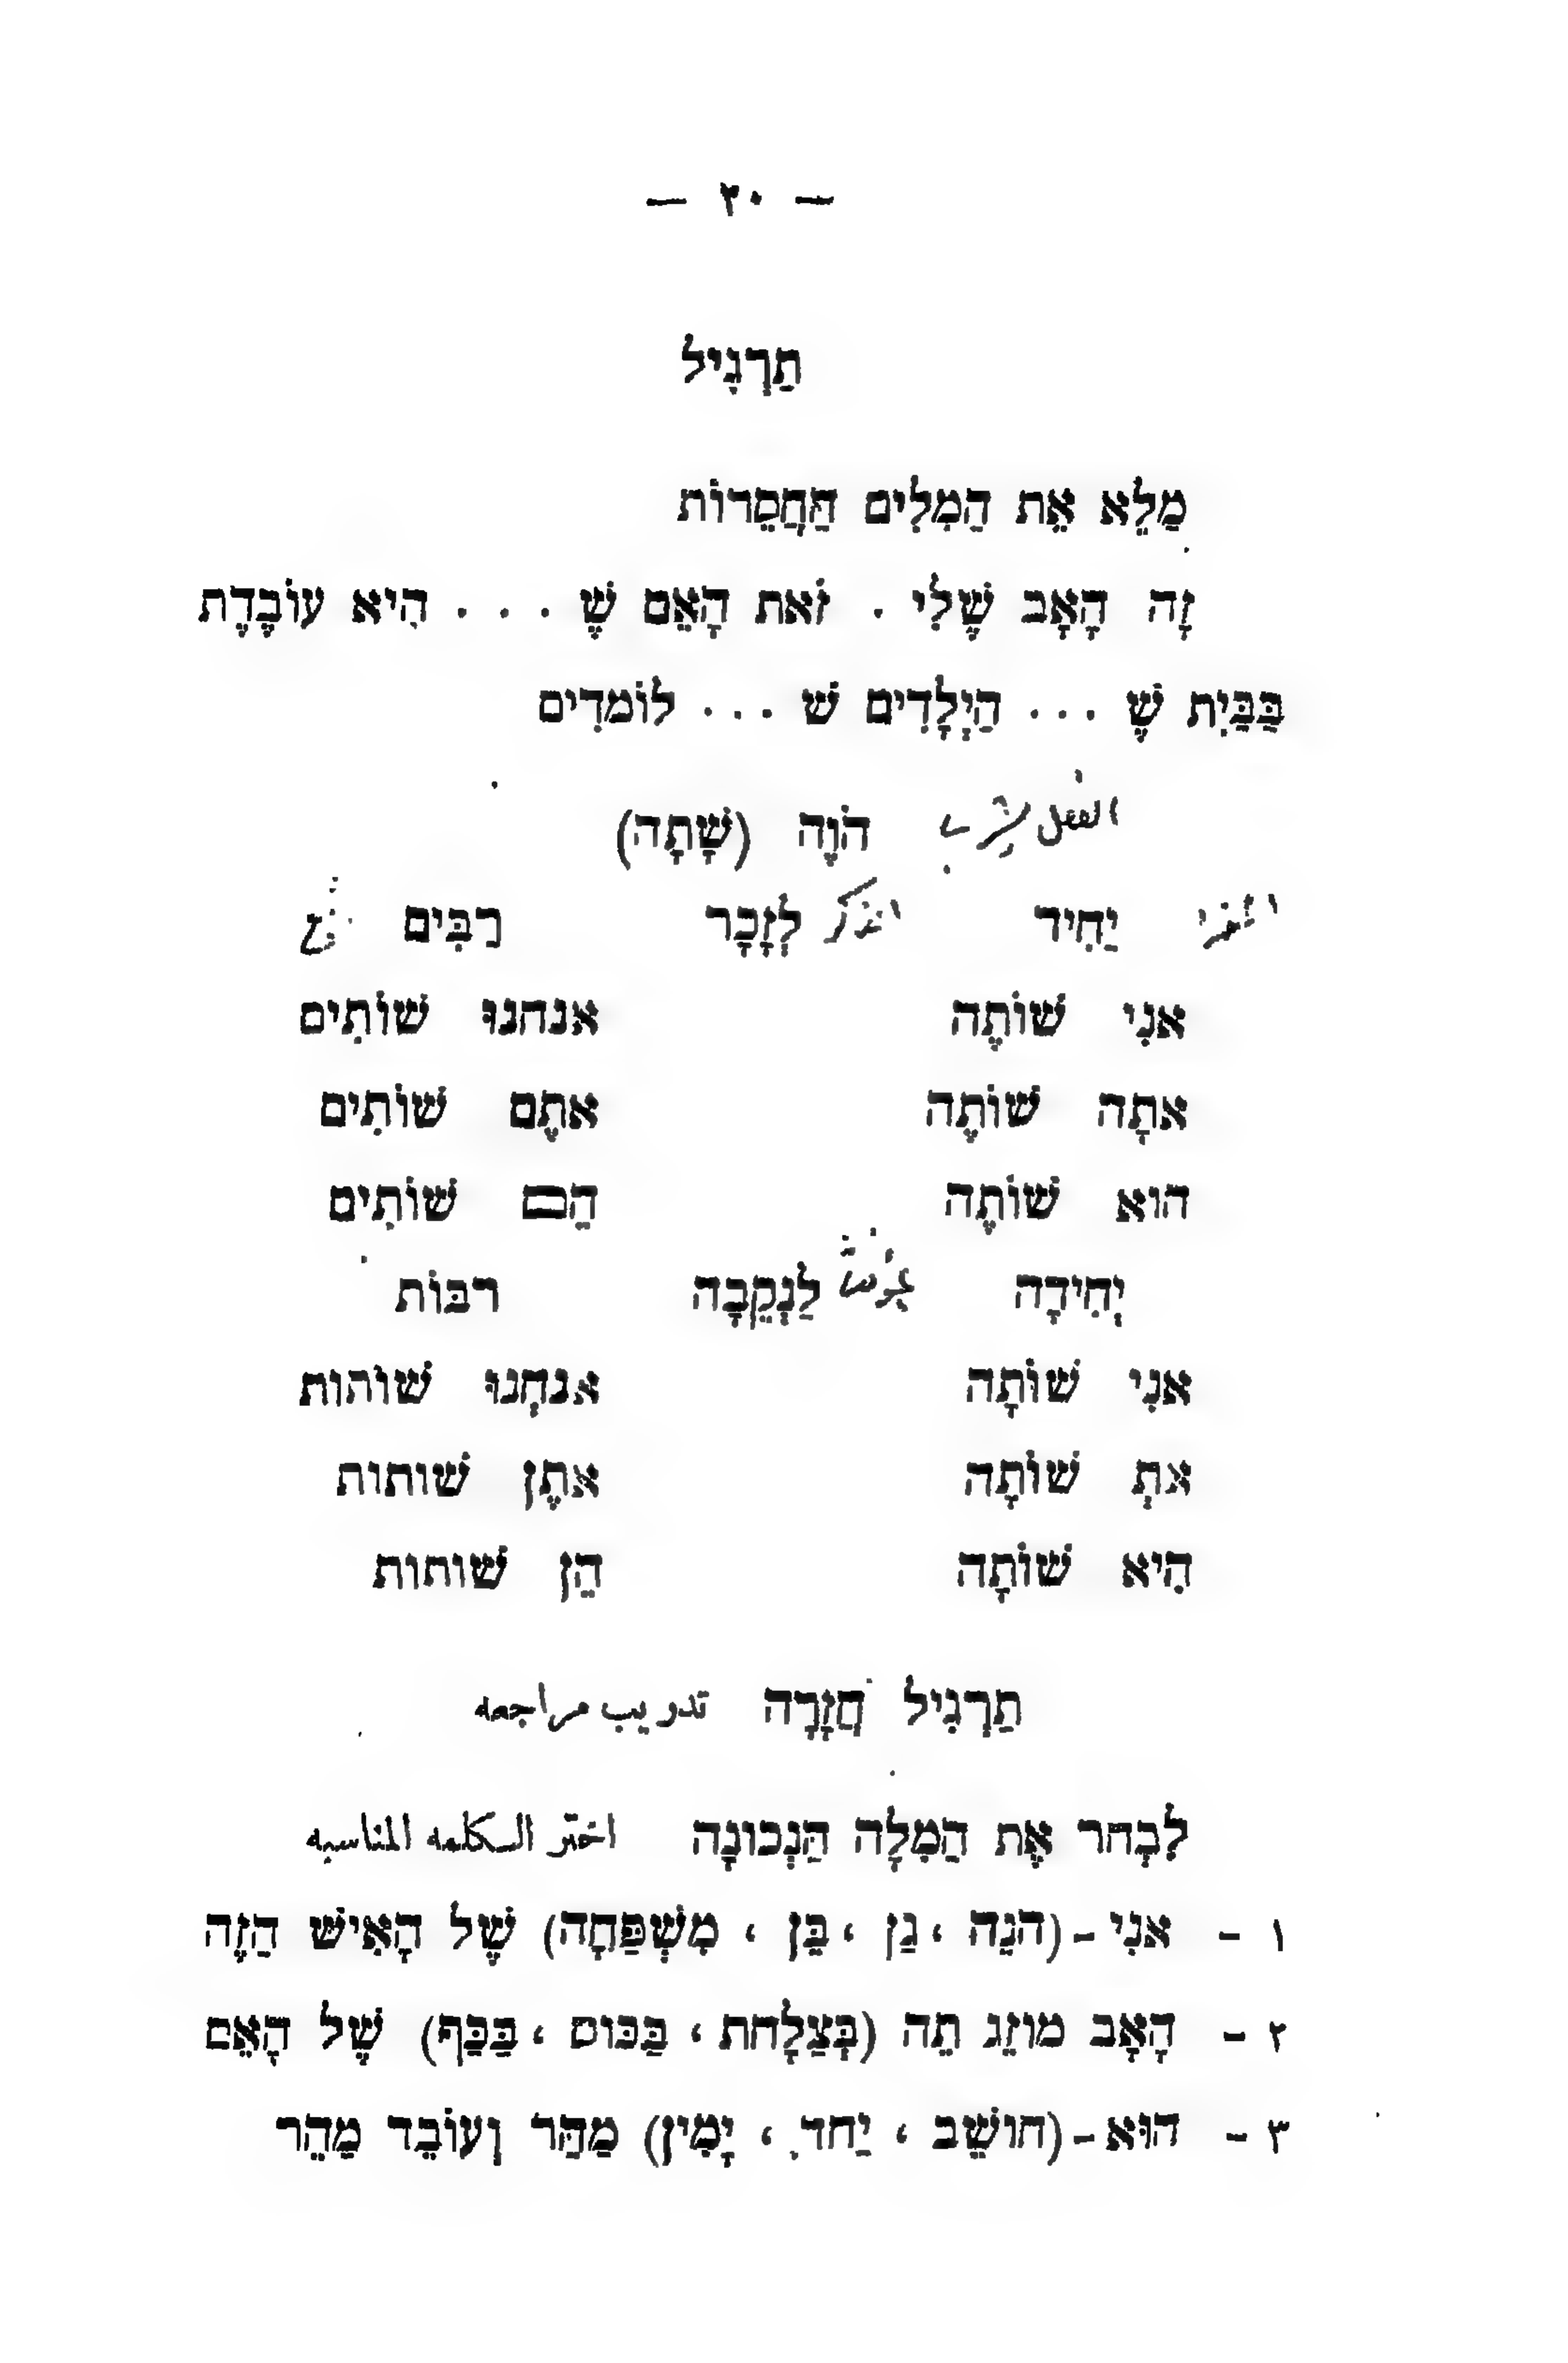 — ٢٠ —
תַרְגִיל
מַלֵא אֶת הַמִלִים הַחֲסֵרוֹת
זֶה הָאָב שֶׁלִי . זֹאת הָאֵם שֶׁ . . . הִיא עוֹבֶדֶת
בַּבַּיִת שֶׁ ... הַיְלָדִים שׁ ... לוֹמדִים
הֹוֶה (שָׁתָה)
יַחִיד לְזָכָר רַבִּים
אנִי שׁוֹתֶה אנחנוּ שׁוֹתִים
אתָה שׁוֹתֶה אתֶם שׁוֹתִים
הוא שׁוֹתֶה הֵם שׁוֹתִים
יְחִידָה לַנְקֵבָה רבּוֹת
אנִי שׁוֹתָה אנחְנוּ שׁוֹתות
אתְ שׁוֹתָה אתֶן שׁותות
הִיא שׁוֹתָה הֵן שׁותות
תַרְגִיל חֲזָרָה تدريب مراجعه
לִבְחר אֶת הַמִלָה הַנְכונָה اختر الكلمه المناسبه
١ - אנִי -(הנֵה ، גַן ، בֵּן ، מִשְׁפַּחָה) שֶׁל הָאִישׁ הַזֶה
٢ - הָאָב מוזֵג תֵה (בְּצַלָחת ، בַּכּוס ، בַּכַּף) שֶׁל הָאֵם
٣ - הוּא -(חושֵׁב ، יַחד ، יָמִין) מַהֵר וְעוֹבֵד מַהֵר